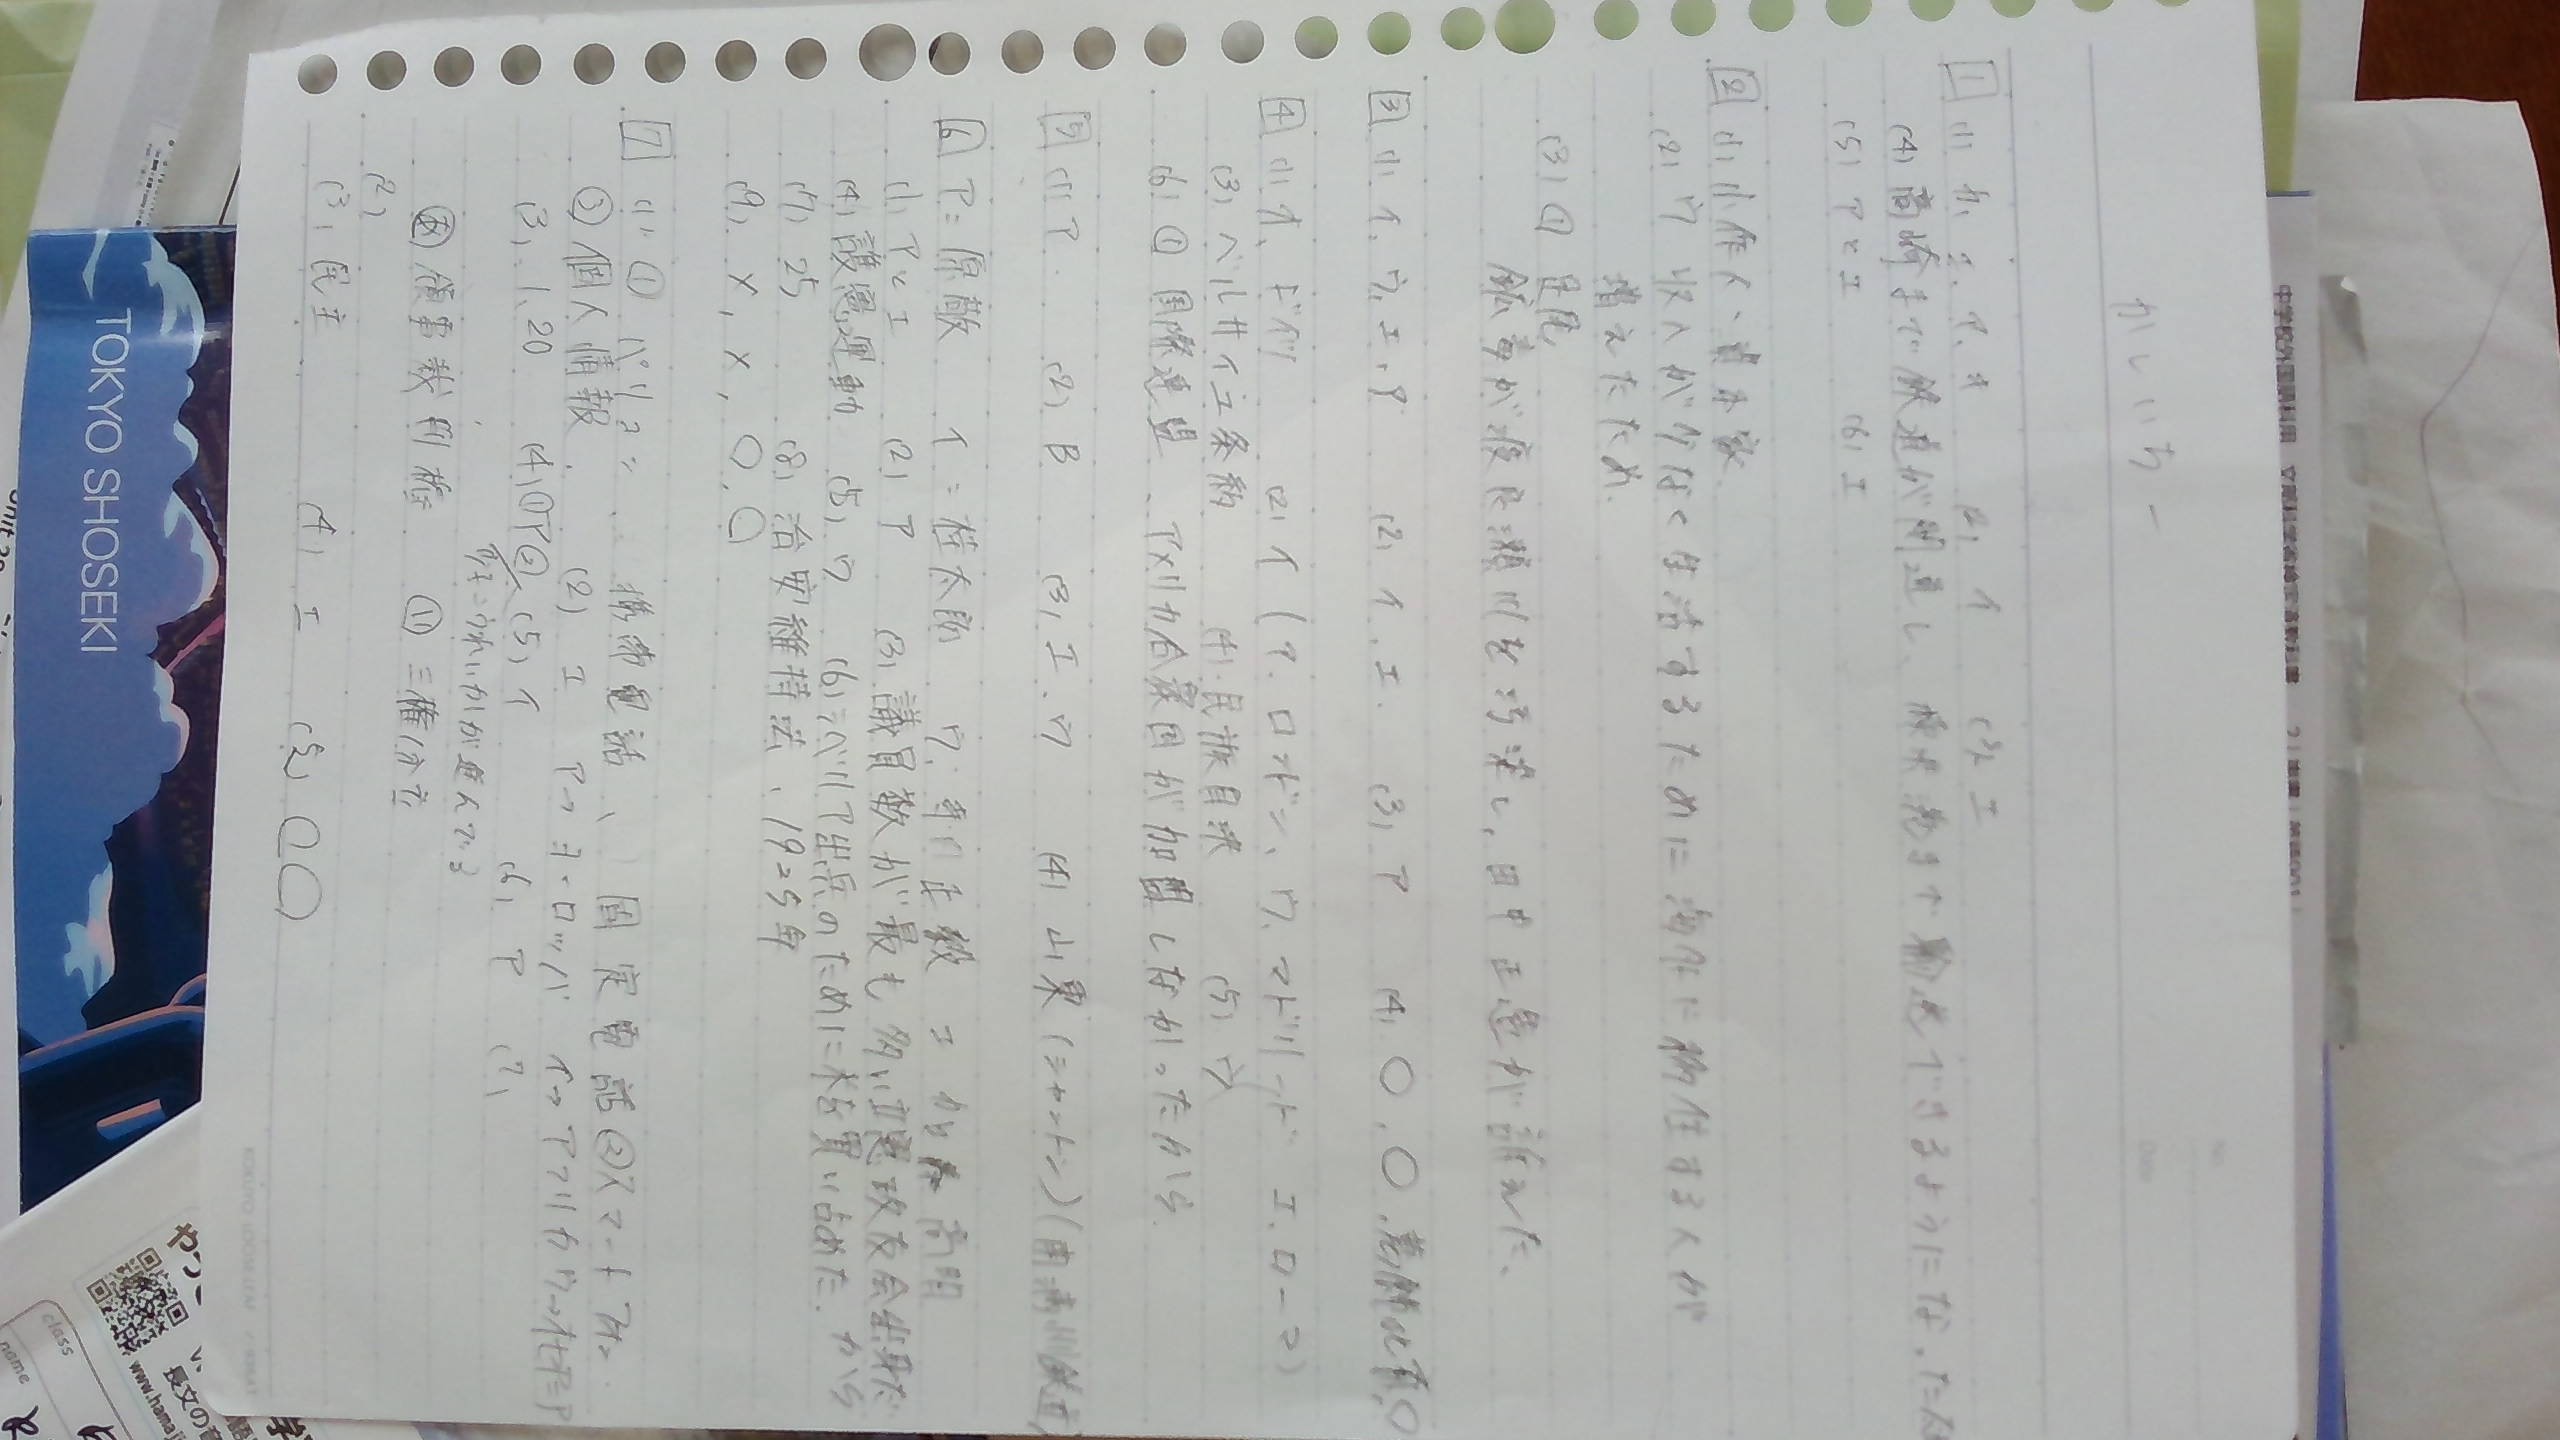 中学校外国語科用 文部科学省検定済教科書 2 東書 英語901
No.
Date
かしいちー
1 (1) カ, エ, ア, オ (2) イ (3) エ
(4) 高崎まで鉄道が開通し、横浜港まで輸送できるようになった
(5) アとエ (6) エ
2 (1) 小作人・資本家
(2) ウ 収入が少なく生活するために海外に移住する人が
増えたため.
(3) ① 足尾
鉱毒が渡良瀬川を汚染し、田中正造が訴えた、
3 (1) イ, ウ, エ, ア (2) イ, エ. (3) ア (4) ○, ○, 葛飾北斎, ○
4 (1) オ、ドイツ (2) イ (ア. ロンドン、ウ. マドリード エ. ローマ)
(3) ベルサイユ条約 (4) 民族自決 (5) ウ
(6) ① 国際連盟 、アメリカ合衆国が加盟しなかったから
5 (1) ア (2) B (3) エ, ウ (4) 山東 (シャントン) (南満州鉄道)
6 ア=原敬 イ=桂太郎 ウ. 寺内正毅 エ 高明
(1) アとエ (2) ア (3) 議員数が最も多い立憲政友会出身だ
から
(4) 護憲運動 (5) ウ (6) シベリア出兵のために米を買い占めた.
(7) 25 (8) 治安維持法、1925年
(9) ×, ×, ○, ○
7 (1) ① パソコン、携帯電話、固定電話 ② スマートフォン
③ 個人情報 (2) エ ア→ヨーロッパ イ→アフリカ ウ→オセアニア
(3) 1.20 (4) ① ア ② (5) イ (6) ア (7)
少子こうれいかが進んでる
あ 領事裁判権 (11) 三権分立
(2)
(3) 民主 (4) エ (5) ○○
KOKUYO LOOSE-LEAF
TOKYO SHOSEKI
長文の音
www.hamaji
class
name